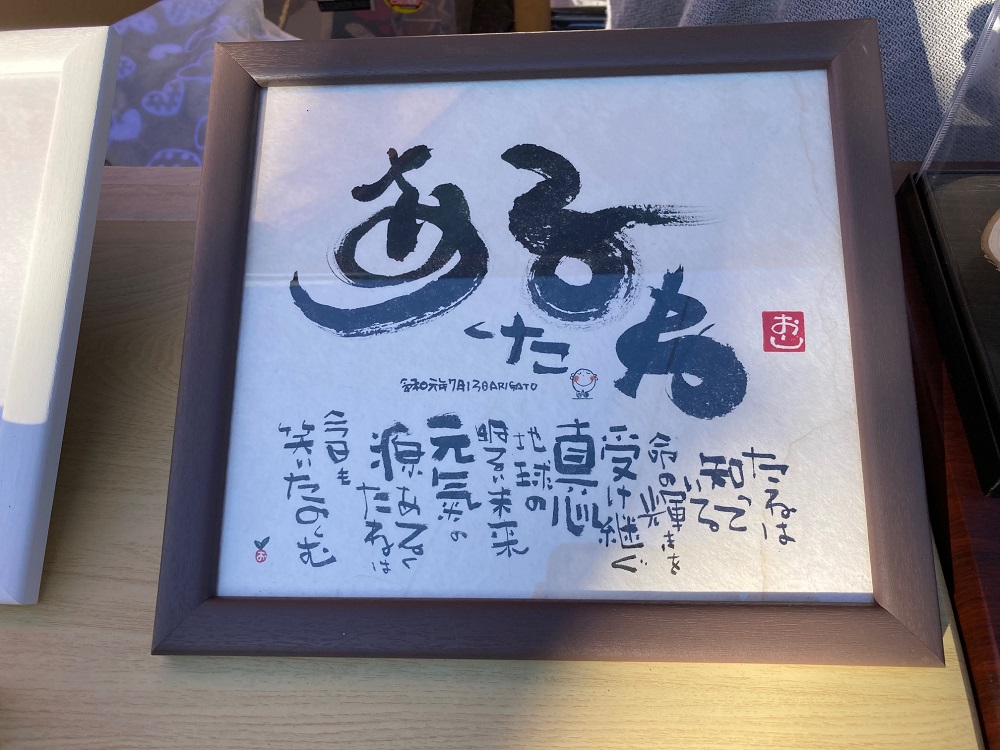 ある
くた
ね
おし
令和元年7月13日ARIGATO
たねは
知って
いる
命の
輝きを
受け継ぐ
真心
地球の
明るい未来
元氣の
源あるく
たねは
今日も
笑いたのしむ
お